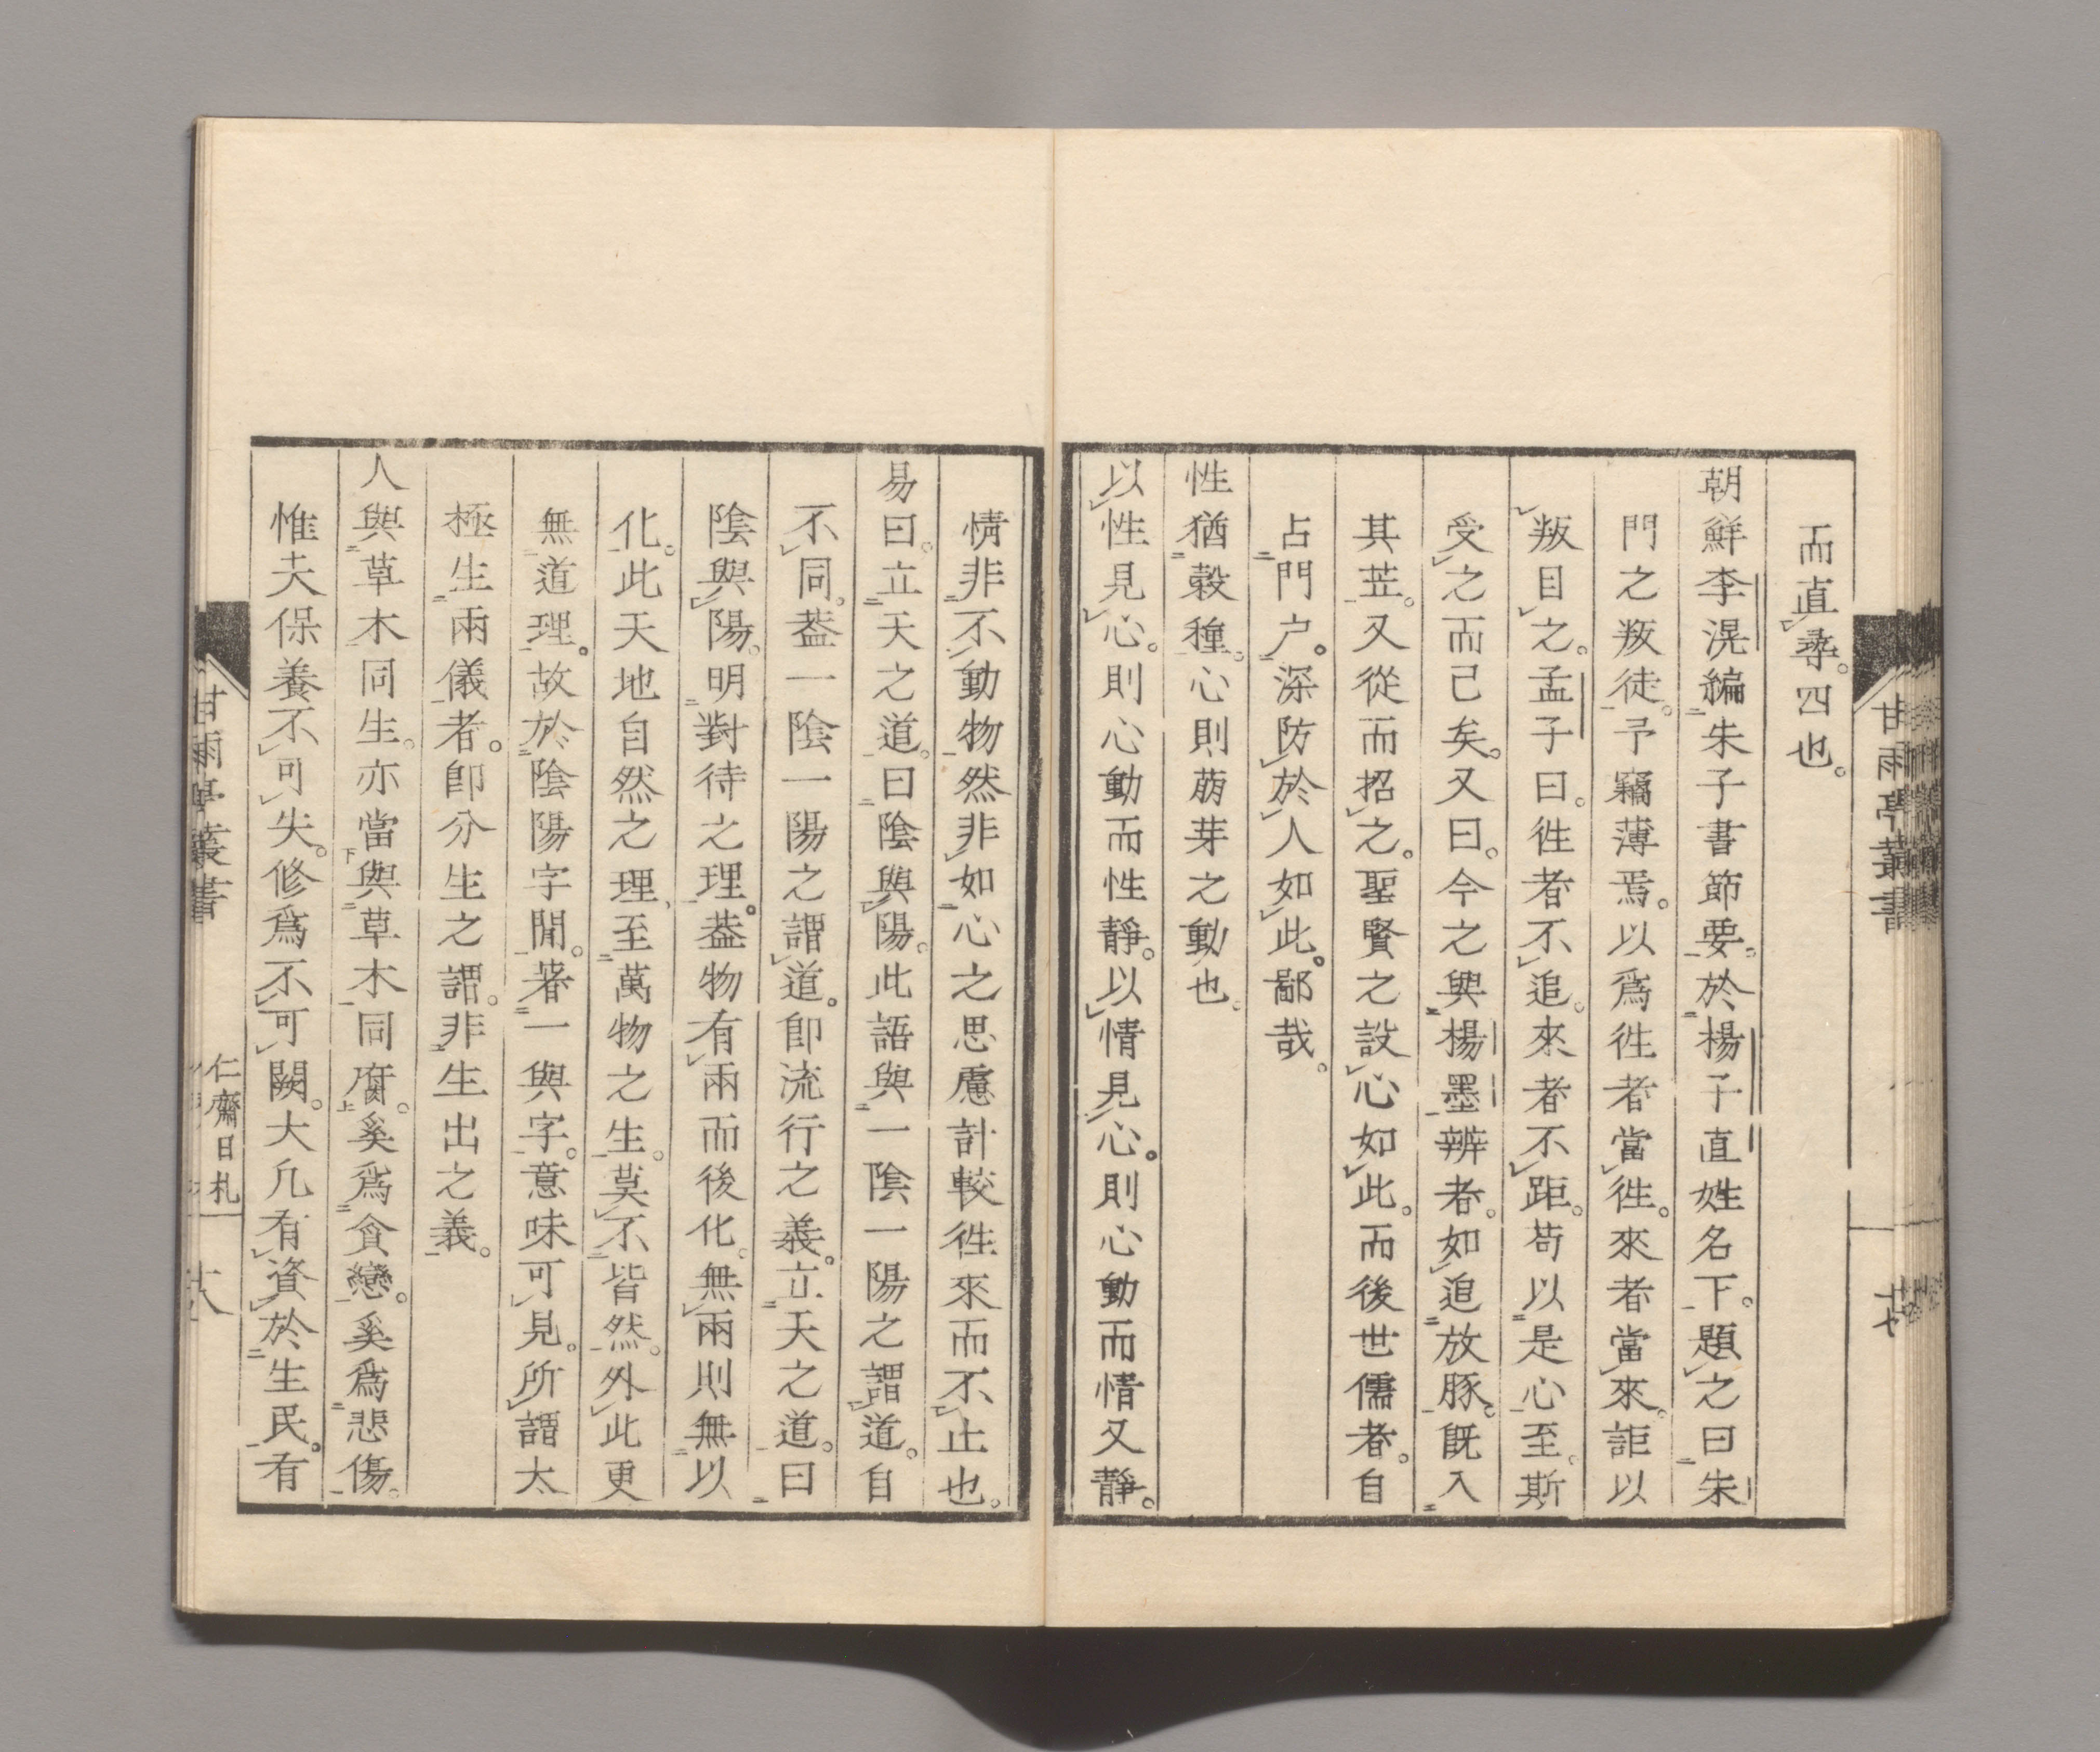 而直尋。四也。
朝鮮李滉編朱子書節要。於楊子直姓名下。題之曰朱
門之叛徒。予竊薄焉。以爲徃者當徃。來者當來。詎以
叛目之。孟子曰。徃者不追。來者不距。苟以是心至。斯
受之而已矣。又曰。今之與楊墨辨者。如追放豚。既入
其苙。又從而招之。聖賢之設心如此。而後世儒者。自
占門户。深防於人如此。鄙哉。
性猶穀種。心則萠芽之動也。
以性見心。則心動而性靜。以情見心。則心動而情又靜。
甘雨亭叢書
十七
情非不動物。然非如心之思慮計較徃來而不止也。
易曰。立天之道。曰陰與陽。此語與一陰一陽之謂道。自
不同。葢一陰一陽之謂道。卽流行之義。立天之道。曰
陰與陽。明對待之理。葢物有兩而後化。無兩則無以
化。此天地自然之理、至萬物之生。莫不皆然。外此更
無道理。故於陰陽字閒。著一與字。意味可見。所謂太
極生兩儀者。卽分生之謂。非生出之義。
人與草木同生。亦當與草木同腐。奚爲貪戀。奚爲悲傷。
惟夫保養不可失。修爲不可闕。大凢有資於生民。有
甘雨亭叢書
仁齋日札
十八